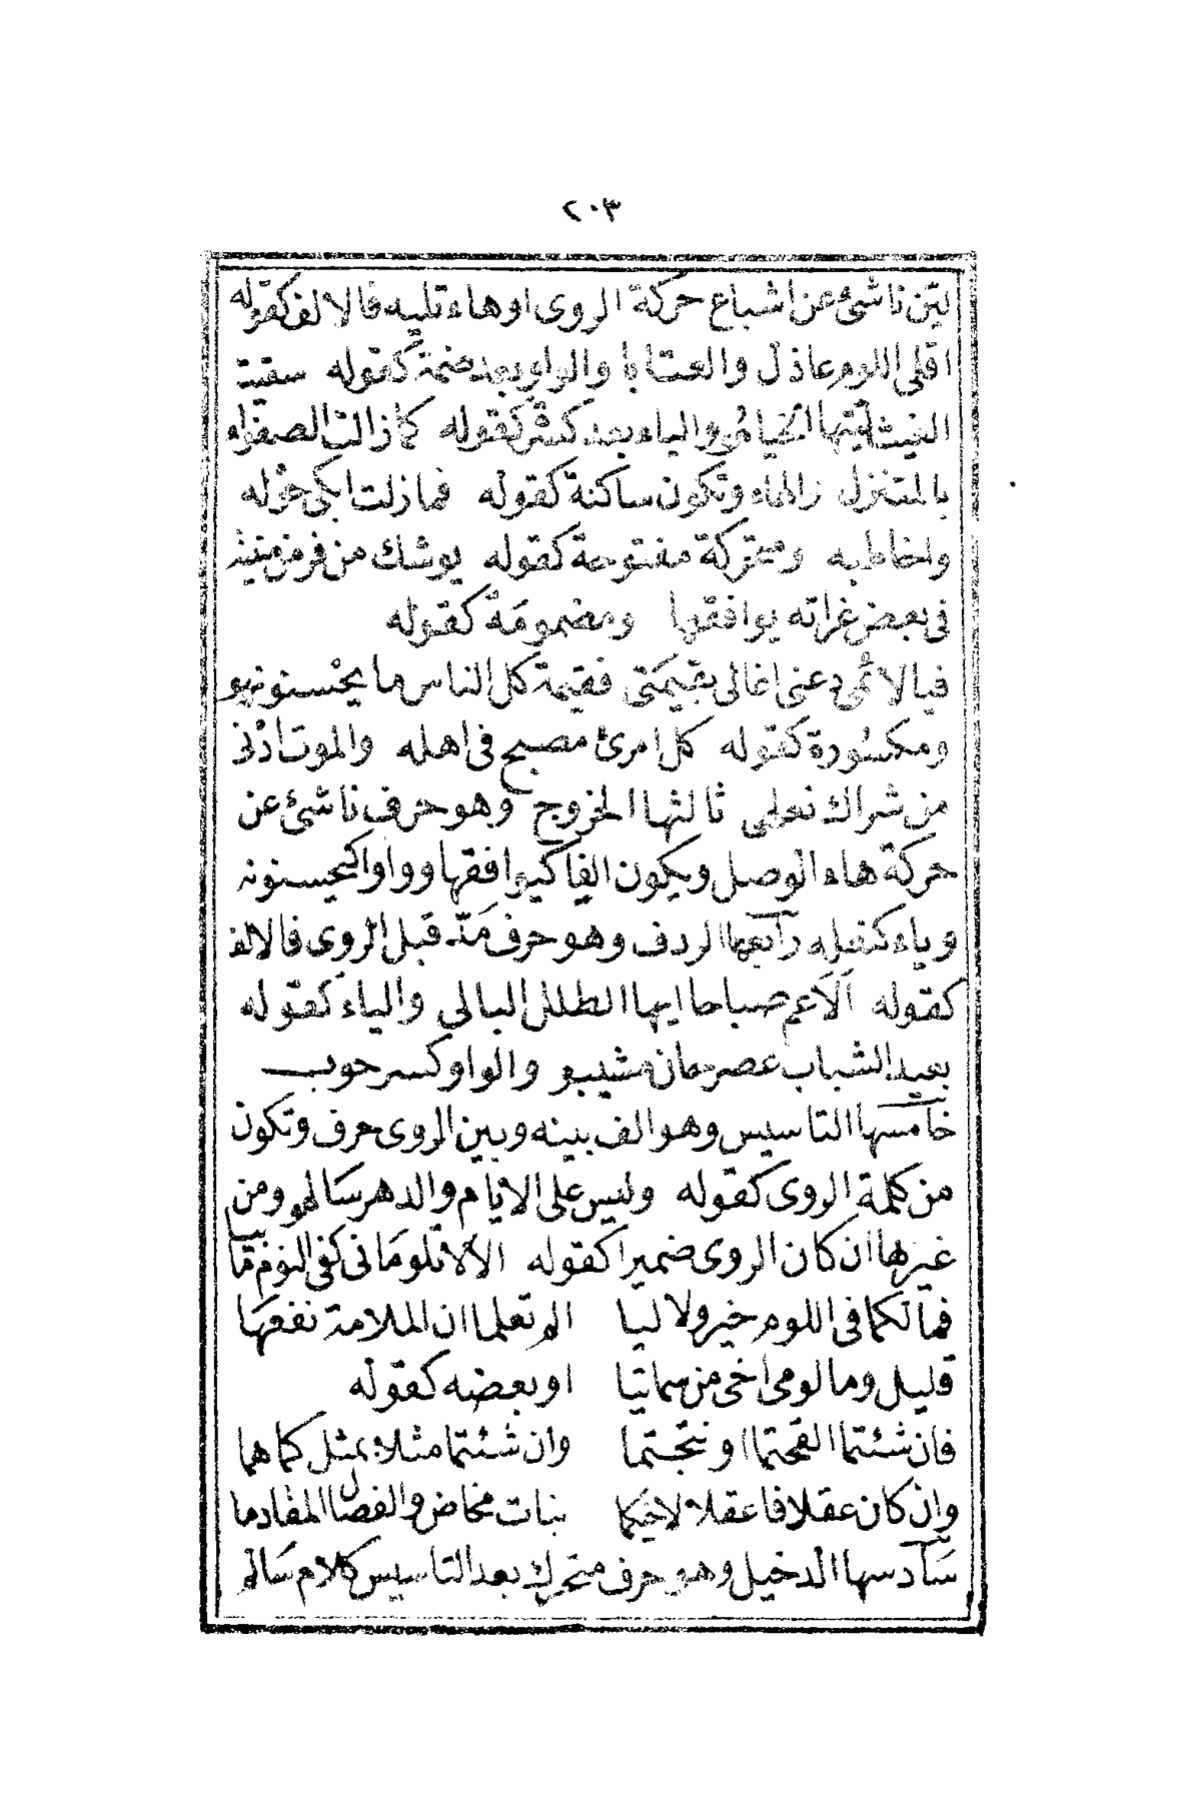 ٢٠٣
لين ناشئ عن اشباع حركة الروى او هاء تليه فالالف كقوله
اقلى اللوم عاذل والعتابا والواو بعد ضمة كقوله سقيت
الغيث ايتها الخيامو والياء بعد كسر كقوله كما زالت الصفواء
بالمتنزل والهاء وتكون ساكنة كقوله فمازلت ابكى حوله
واخاطبه ومتحركة مفتوحة كقوله يوشك من فر من منيته
فى بعض غراته يوافقها ومضمومة كقوله
فيالائمى دعنى اغالى بقيمتى فقيمة كل الناس ما يحسنونهو
ومكسورة كقوله كل امرئ مصبح فى اهله والموت ادنى
من شراك نعلهى ثالثها الخروج وهو حرف ناشئ عن
حركة هاء الوصل ويكون الفا كيوافقها وواوا كيحسنونه
وياء كنعله رابعها الردف وهو حرف مد قبل الروى فالالف
كقوله الاعم صباحا ايها الطلل البالي والياء كقوله
بعيد الشباب عصر حان مشيبو والواو كسرحوب
خامسها التاسيس وهو الف بينه وبين الروى حرف وتكون
من كلمة الروى كقوله وليس على الايام والدهر سالمو ومن
غيرها ان كان الروى ضميرا كقوله الا لا تلومانى كفى اللوم مابيا
فمالكما فى اللوم خير ولا ليا الم تعلما ان الملامة نفعها
قليل وما لومى اخى من سماتيا او بعضه كقوله
فان شئتما القحتما او نتجتما وان شئتما مثلا بمثل كما هما
وان كان عقلا فاعقلا لاخيكما بنات مخاض والفصال المقادما
سادسها الدخيل وهو حرف متحرك بعد التاسيس كلام سالم